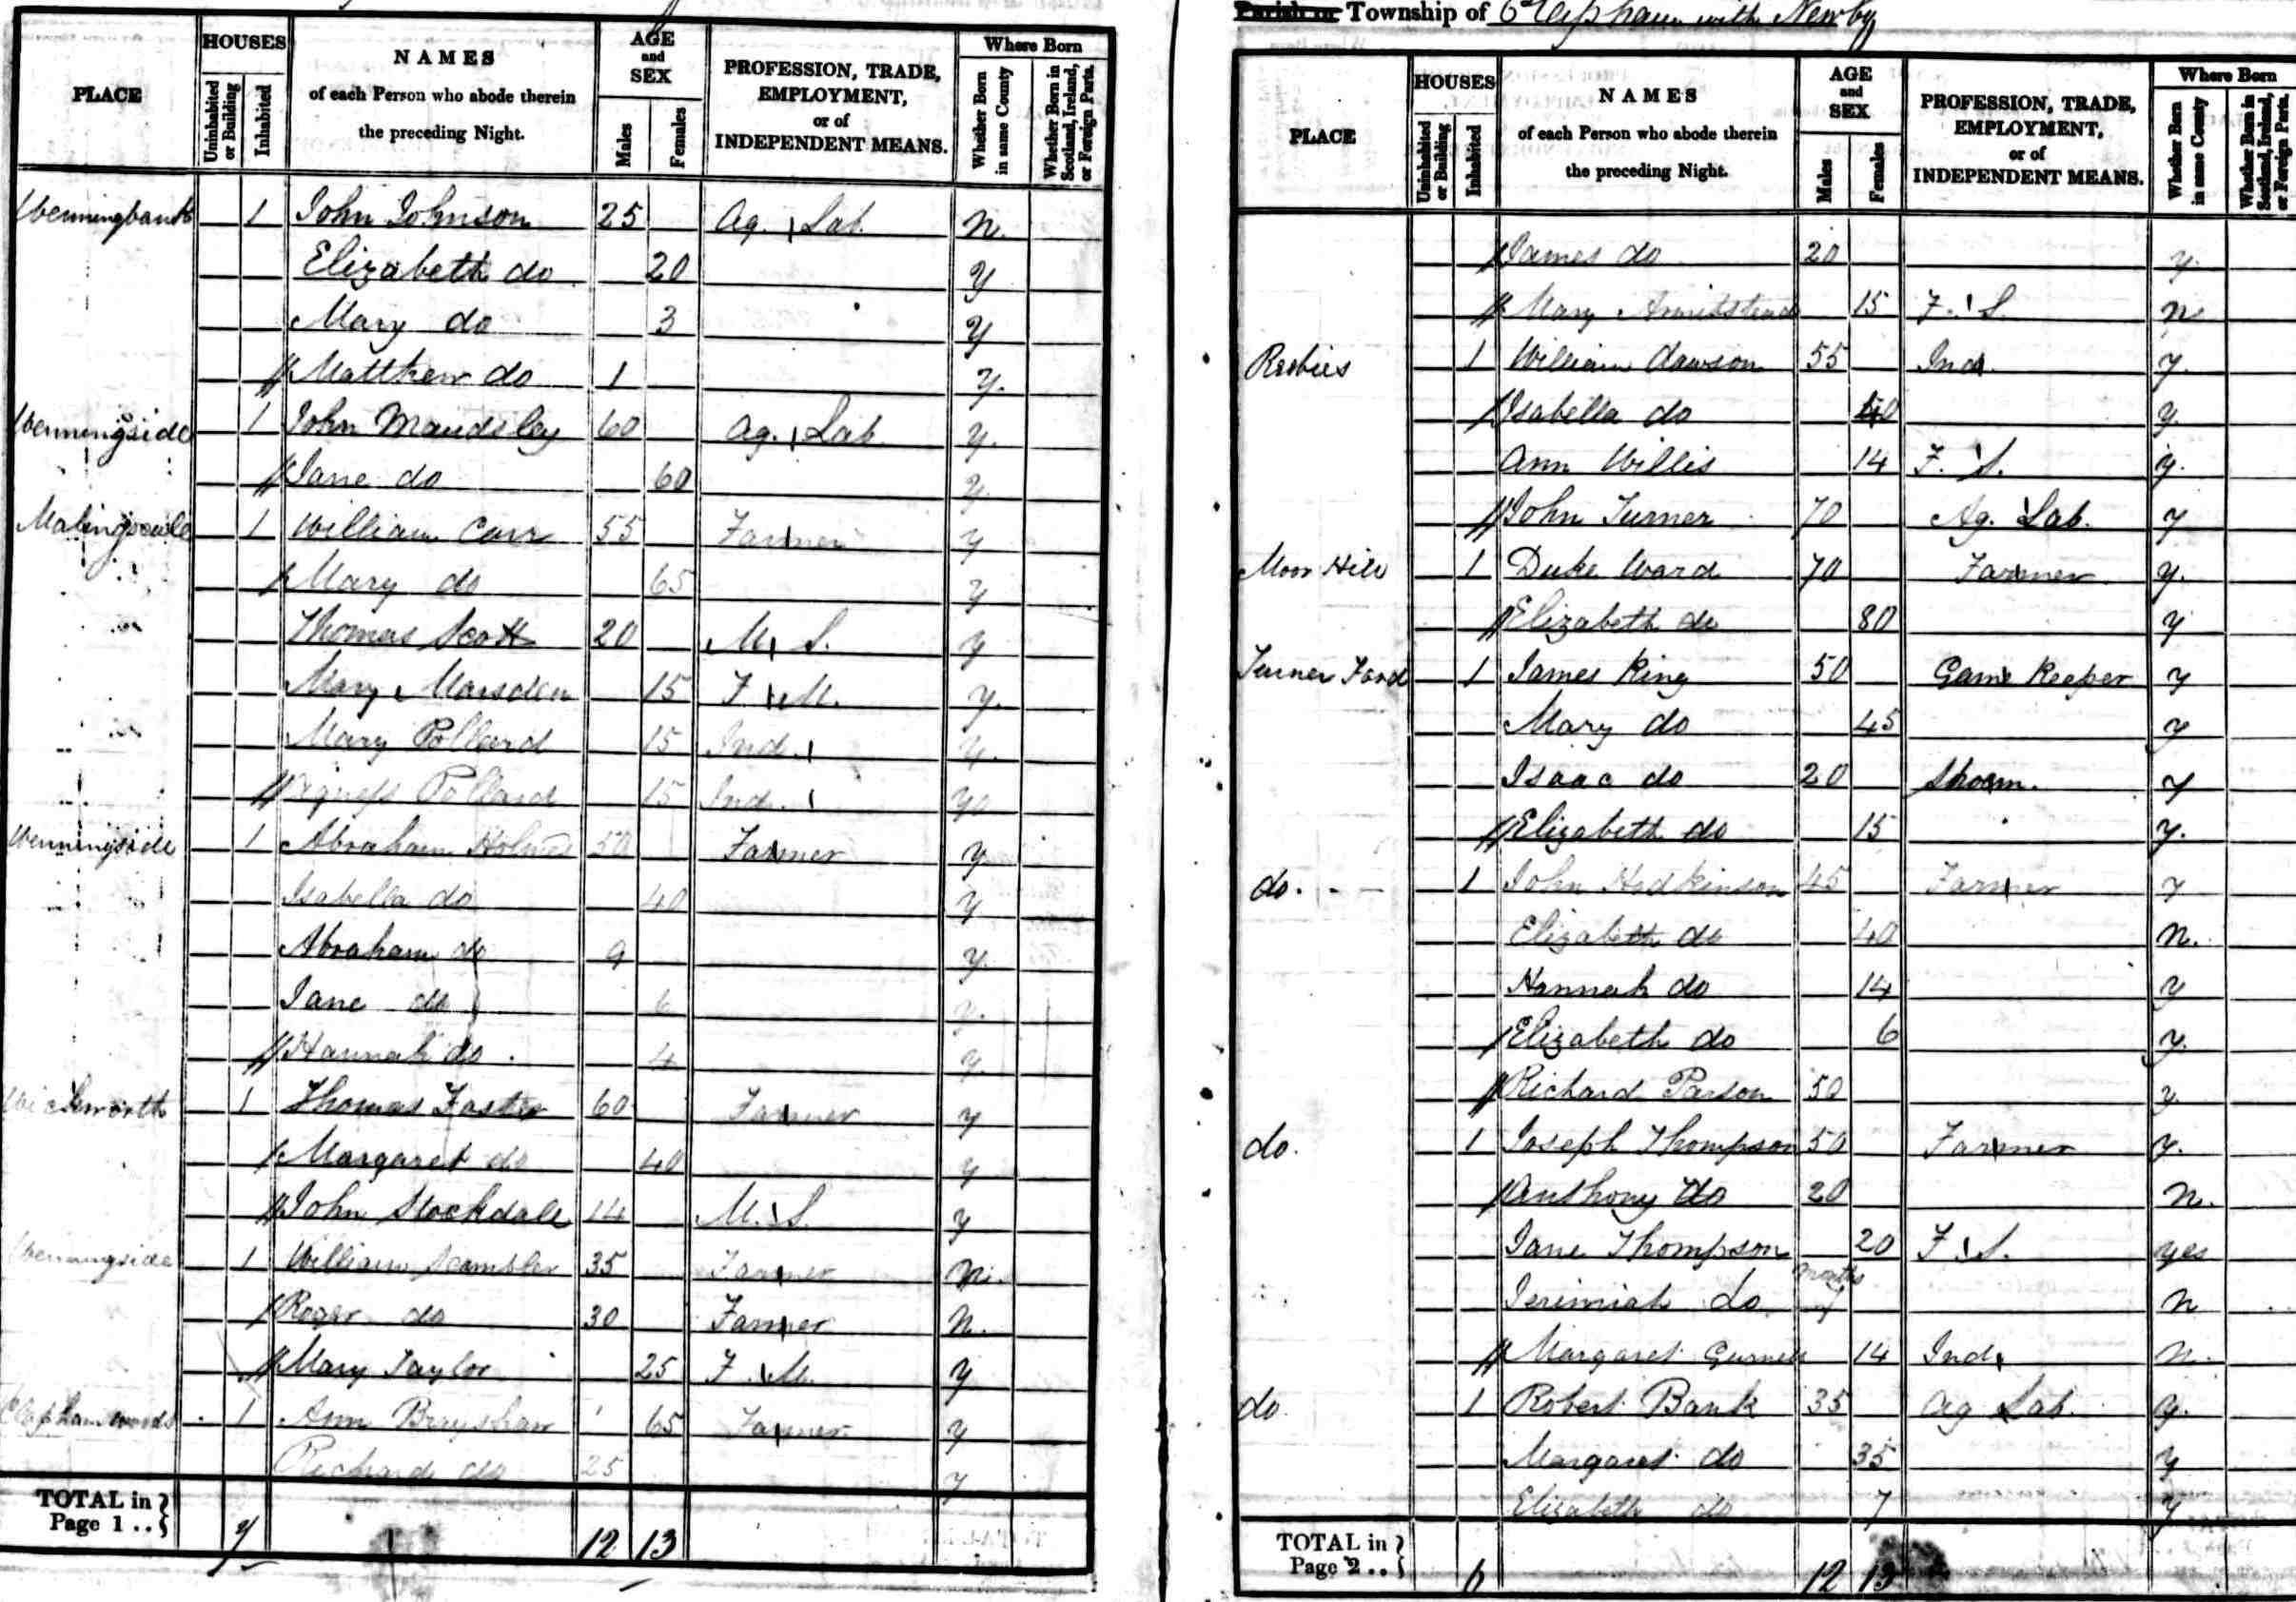 PLACE
HOUSES
Uninhabited or Building
Inhabited
NAMES
of each Person who abode therein
the preceding Night.
AGE and SEX
Males
Females
PROFESSION, TRADE, EMPLOYMENT, or of INDEPENDENT MEANS.
Where Born
Whether Born in same County
Whether Born in Scotland, Ireland, or Foreign Parts.
Wenningbank 1 John Johnson 25 Ag. Lab. n.
Elizabeth do 20 y
Mary do 3 y
Matthew do 1 y.
Wenningside 1 John Maudsley 60 Ag. Lab. y.
Jane do 60 y.
1 William Carr 55 Farmer y
Mary do 65 y
Thomas Scott 20 M. S. y
Mary Marsden 15 F. M. y.
Mary Pollard 15 Ind. y.
Agness Pollard 15 Ind. y
Wenningside 1 Abraham Holmes 50 Farmer y
Isabella do 40 y
Abraham do 9 y.
Jane do 6 y.
Hannah do. 4 y.
1 Thomas Foster 60 Farmer y
Margaret do 40 y
John Stockdale 14 M. S. y
Wenningside 1 William Scambler 35 Farmer n.
Roger do 30 Farmer n.
Mary Taylor 25 F. M. y
Clapham woods 1 Ann Brayshaw 65 Farmer y
Richard do 25 y
TOTAL in Page 1 .. 7 12 13
Parish or Township of Clapham with Newby
PLACE
HOUSES
Uninhabited or Building
Inhabited
NAMES
of each Person who abode therein
the preceding Night.
AGE and SEX
Males
Females
PROFESSION, TRADE, EMPLOYMENT, or of INDEPENDENT MEANS.
Where Born
Whether Born in same County
Whether Born in Scotland, Ireland, or Foreign Parts.
James do 20 y.
Mary Armitstead 15 F. S. n
1 William Clawson 55 Ind. y.
Isabella do 40 y.
Ann Willis 14 F. S. y.
John Turner 70 Ag. Lab. y
Moor Hill 1 Duke Ward 70 Farmer y.
Elizabeth do 80 y
Turner Ford 1 James King 50 Game Keeper y
Mary do 45 y
Isaac do 20 Shoem. y
Elizabeth do 15 y.
do. 1 John Hodkinson 45 Farmer y
Elizabeth do 40 n.
Hannah do 14 y
Elizabeth do 6 y.
Richard Parson 50 y
do. 1 Joseph Thompson 50 Farmer y.
Anthony do 20 n.
Jane Thompson 20 F. S. yes
Jerimiah do months n
Margaret Gurnell 14 Ind. n.
do 1 Robert Bank 35 Ag Lab. y.
Margaret do 35 y
Elizabeth do 7 y
TOTAL in Page 2 .. 6 12 13